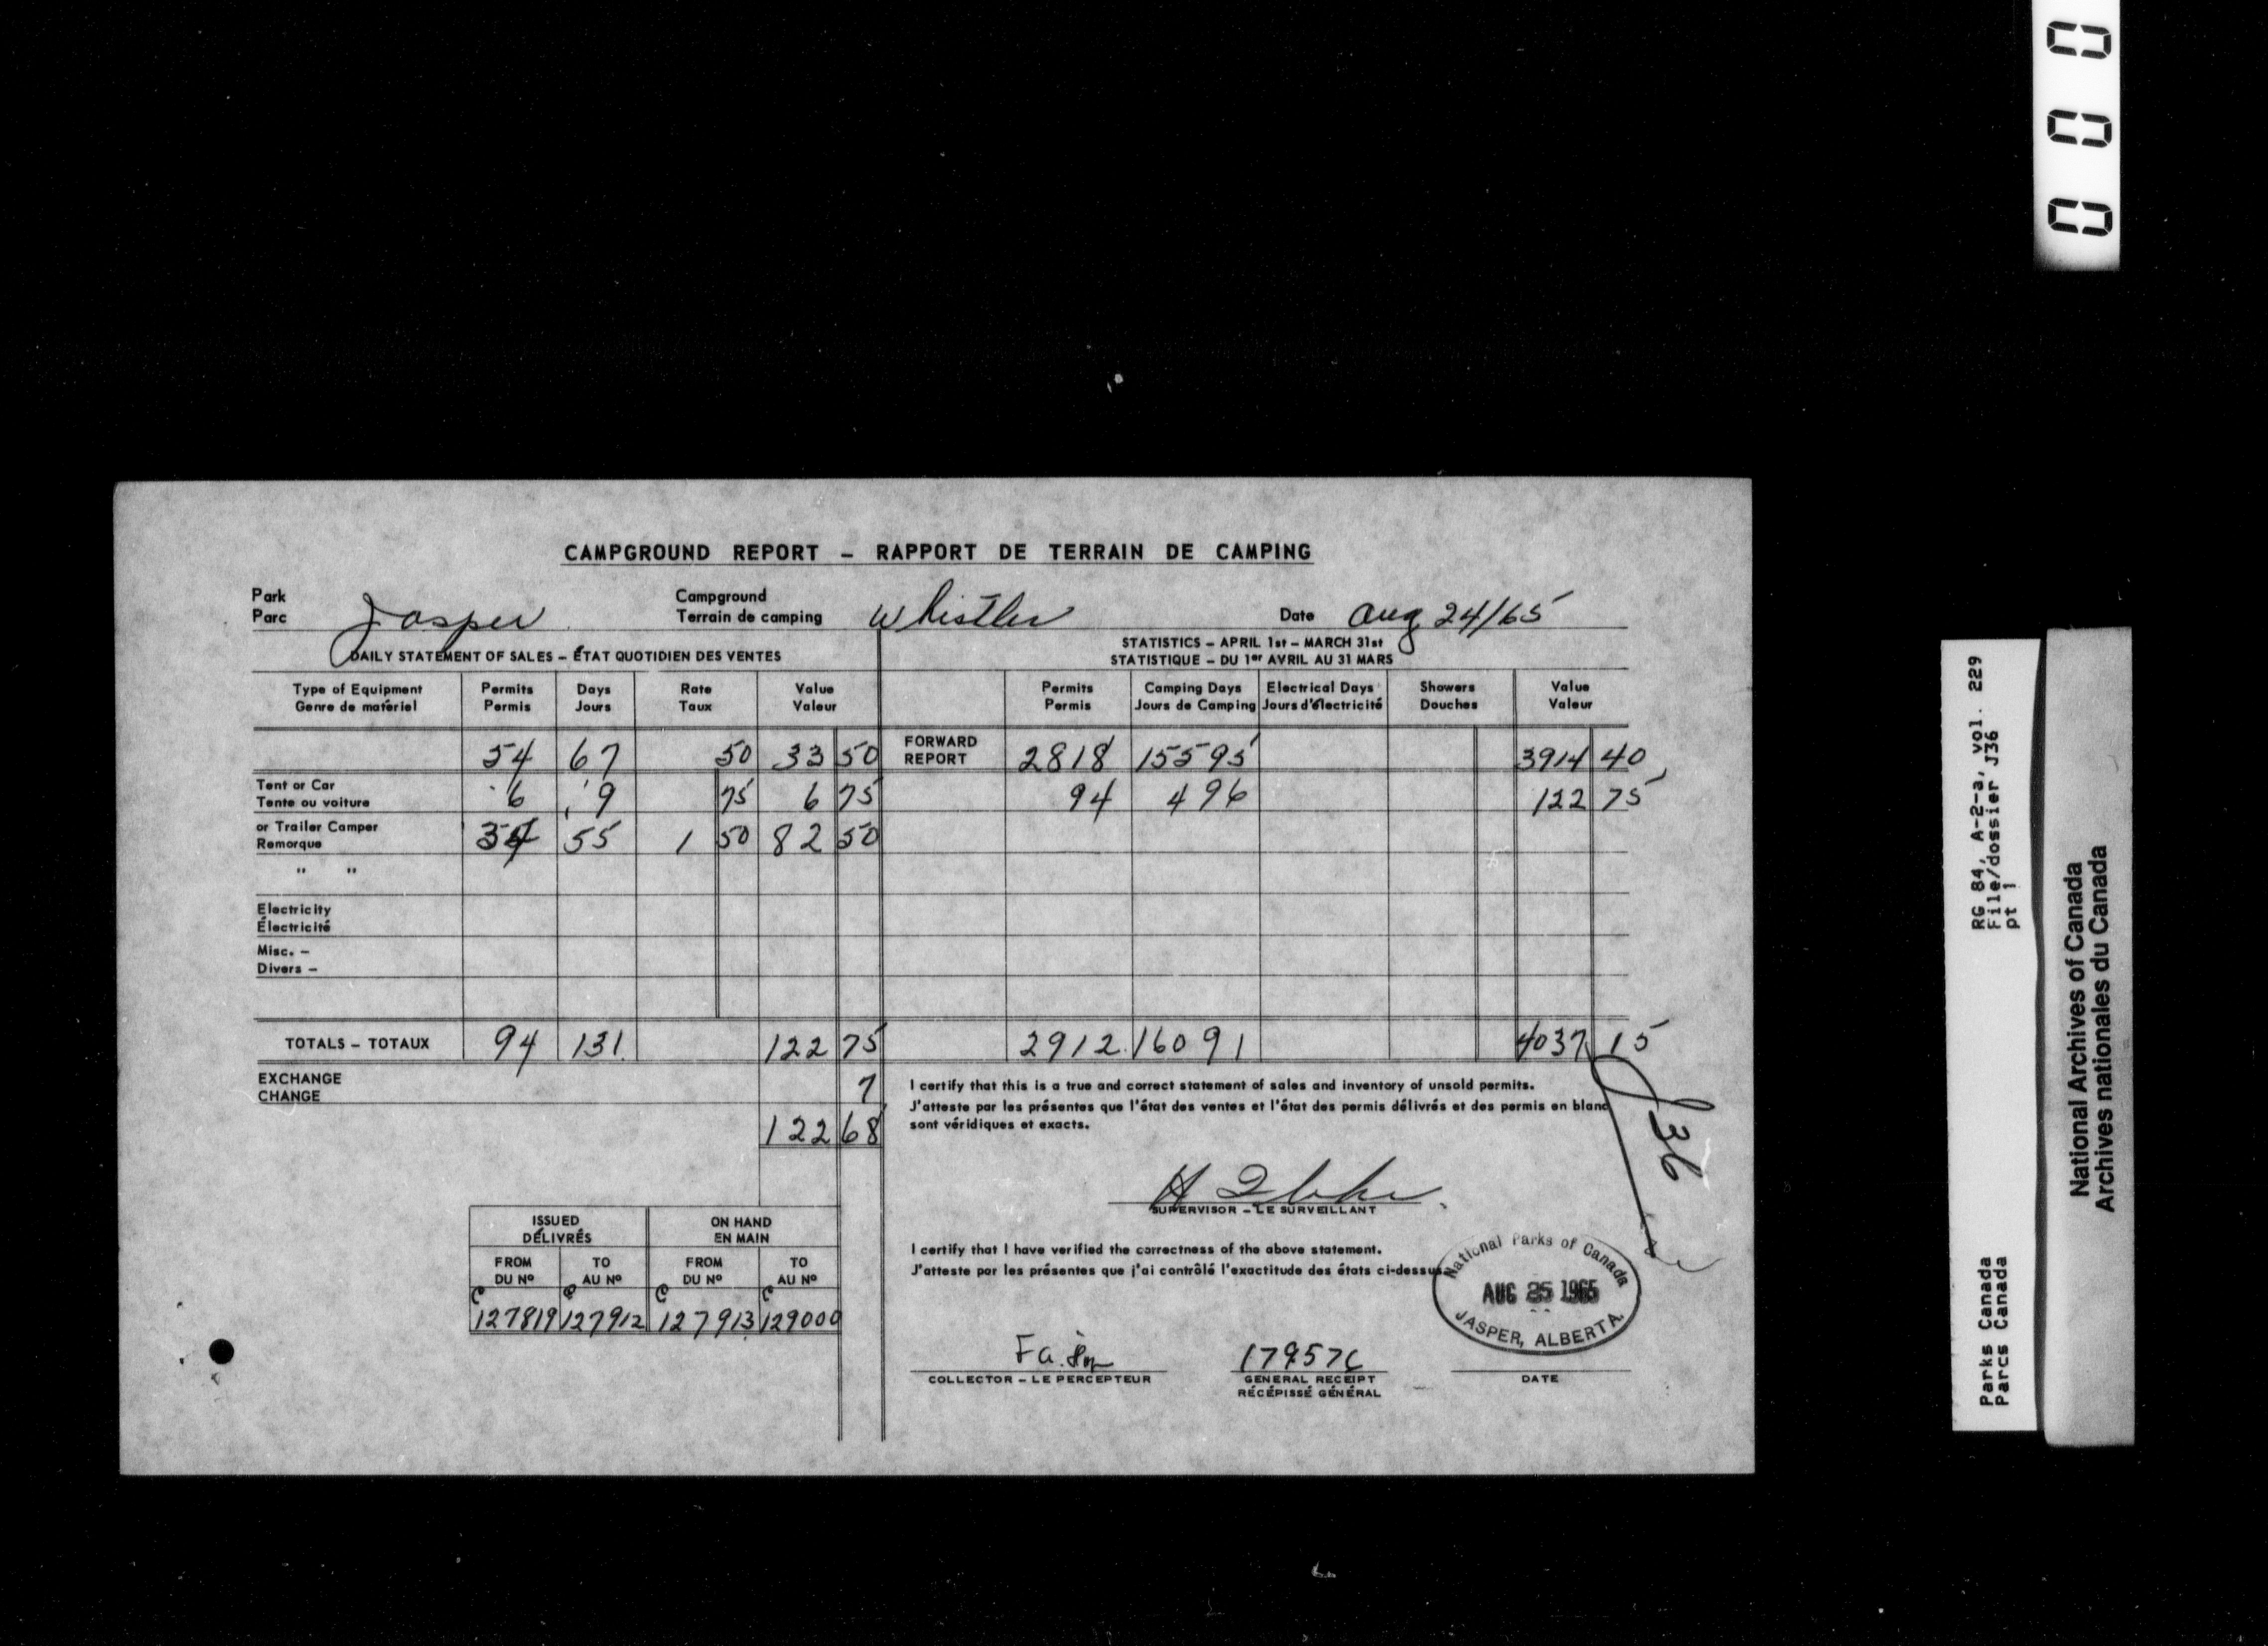 000
CAMPGROUND REPORT – RAPPORT DE TERRAIN DE CAMPING
Park
Parc Jasper
Campground
Terrain de camping Whistler
Date Aug 24/65
DAILY STATEMENT OF SALES – ÉTAT QUOTIDIEN DES VENTES
STATISTICS – APRIL 1st – MARCH 31st
STATISTIQUE – DU 1er AVRIL AU 31 MARS
Type of Equipment Permits Days Rate Value Permits Camping Days Electrical Days Showers Value
Genre de matériel Permis Jours Taux Valeur Permis Jours de Camping Jours d'électricité Douches Valeur
54 67 50 33 50 FORWARD REPORT 2818 15595 3914 40
Tent or Car
Tente ou voiture 6 9 75 6 75 94 496 122 75
or Trailer Camper
Remorque 34 55 1 50 82 50
" "
Electricity
Électricité
Misc. –
Divers –
TOTALS – TOTAUX 94 131 122 75 2912 16091 4037 15
EXCHANGE
CHANGE 7
122 68
I certify that this is a true and correct statement of sales and inventory of unsold permits.
J'atteste par les présentes que l'état des ventes et l'état des permis délivrés et des permis en blanc
sont véridiques et exacts.
J36
SUPERVISOR – LE SURVEILLANT
ISSUED ON HAND
DÉLIVRÉS EN MAIN
FROM TO FROM TO
DU Nº AU Nº DU Nº AU Nº
C C C C
127819 127912 127913 129000
I certify that I have verified the correctness of the above statement.
J'atteste par les présentes que j'ai contrôlé l'exactitude des états ci-dessus.
National Parks of Canada
AUG 25 1965
JASPER, ALBERTA.
COLLECTOR – LE PERCEPTEUR
GENERAL RECEIPT
RÉCÉPISSÉ GÉNÉRAL
DATE
RG 84, A-2-a, vol. 229
File/dossier J36
pt 1
Parks Canada
Parcs Canada
National Archives of Canada
Archives nationales du Canada